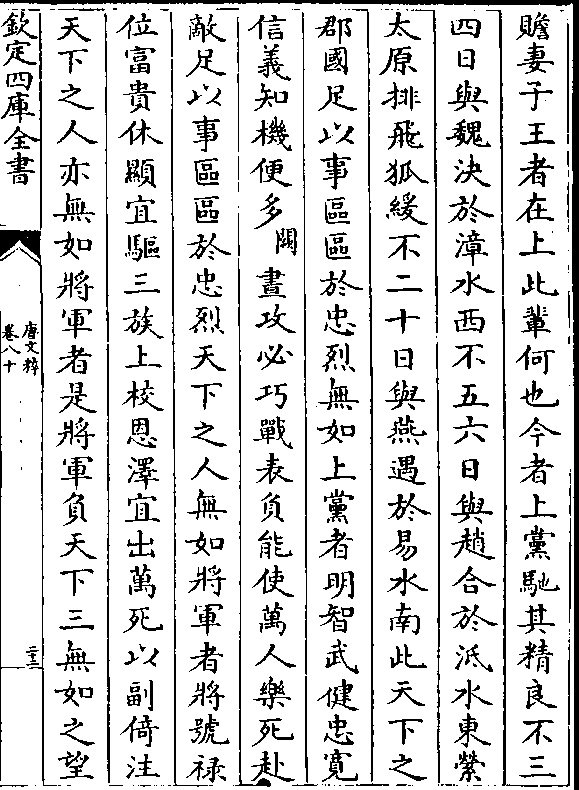 贍妻子王者在上此輩何也今者上黨馳其精良不三
四日與魏決於漳水西不五六日與趙合於泜水東縈
太原排飛狐緩不二十日與燕遇於易水南此天下之
郡國足以事區區於忠烈無如上黨者明智武健忠寛
信義知機便多闕畫攻必巧戰表負能使萬人樂死赴
敵足以事區區於忠烈天下之人無如將軍者將號禄
位富貴休顯宜驅三族上校恩澤宜出萬死以副倚注
天下之人亦無如將軍者是將軍負天下三無如之望
欽定四庫全書
唐文粹
卷八十
二十三